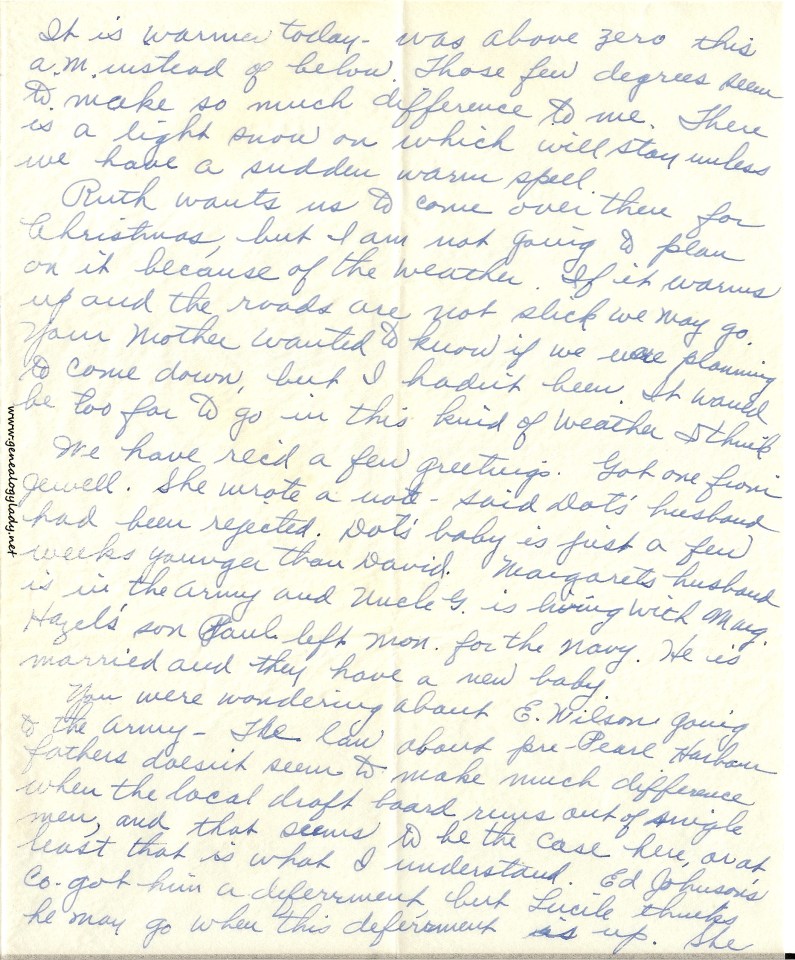 It is warmer today - was above zero this
a.m. instead of below. Those few degrees seem
to make so much difference to me. There
is a light snow on which will stay unless
we have a sudden warm spell.
Ruth wants us to come over there for
Christmas, but I am not going to plan
on it because of the weather. If it warms
up and the roads are not slick we may go.
Your Mother wanted to know if we were planning
to come down, but I hadn't been. It would
be too far to go in this kind of weather I think
We have rec'd a few greetings. Got one from
Jewell. She wrote a note - said Dot's husband
had been rejected. Dot's baby is just a few
weeks younger than David. Margaret's husband
is in the Army and Uncle G. is living with Marg.
Hazel's son Paul left Mon. for the Navy. He is
married and they have a new baby.
You were wondering about E. Wilson going
to the Army - The law about pre-Pearl Harbour
fathers doesn't seem to make much difference
when the local draft board runs out of single
men, and that seems to be the case here, or at
least that is what I understand. Ed Johnson's
Co. got him a deferrment but Lucile thinks
he may go when this deferrment is up. She
www.genealogylady.net